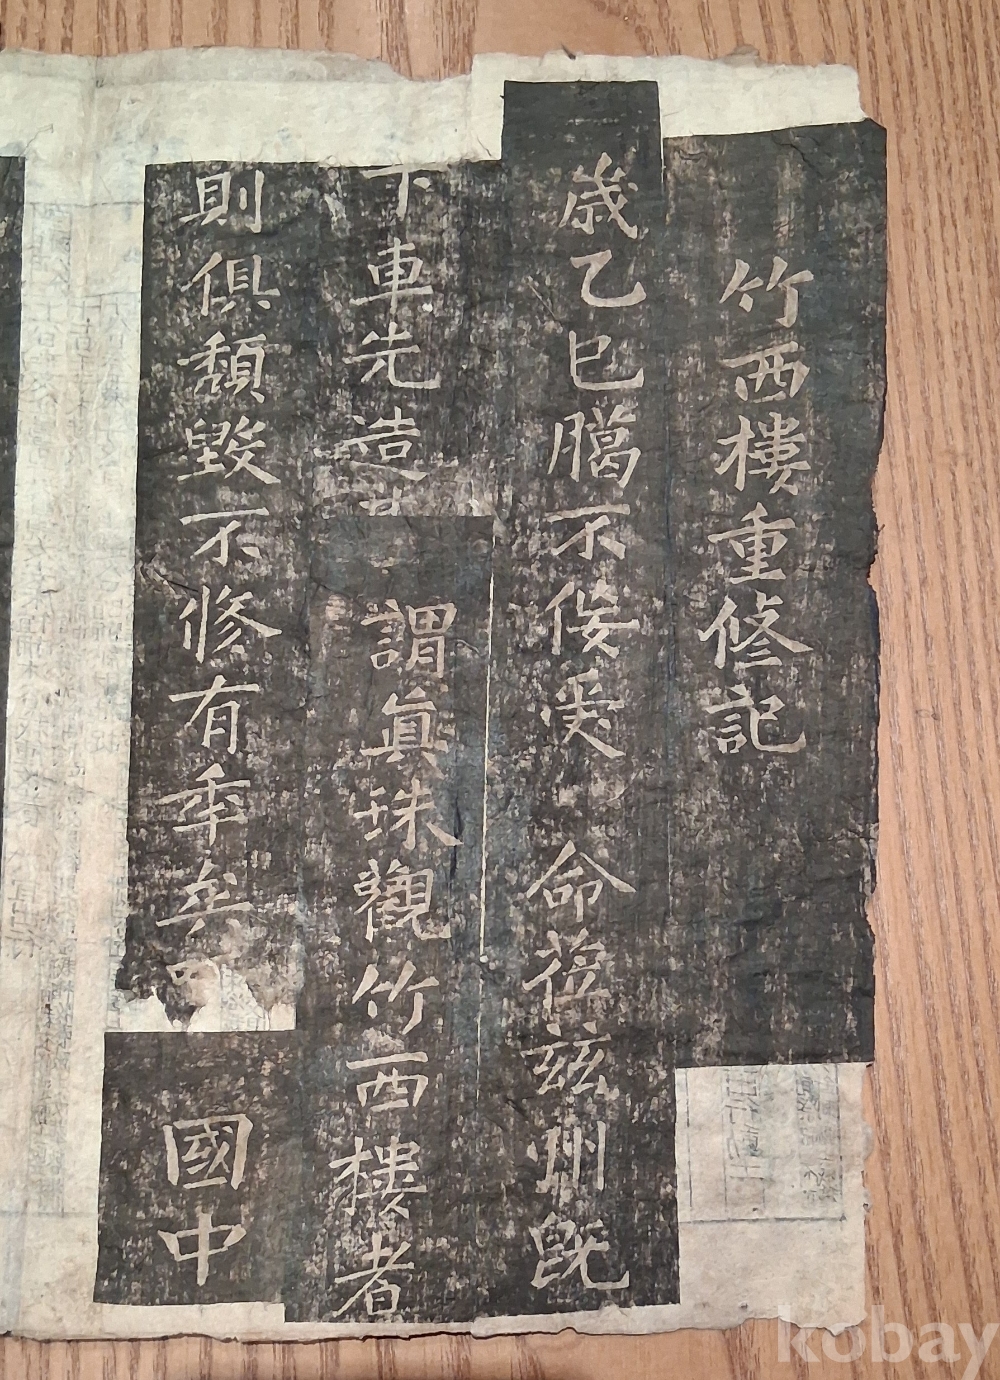 竹西樓重修記
歲乙巳臈不佞受命莅玆州旣
下車先造謂眞珠觀竹西樓者
則俱頹毀不修有年矣國中
kobay